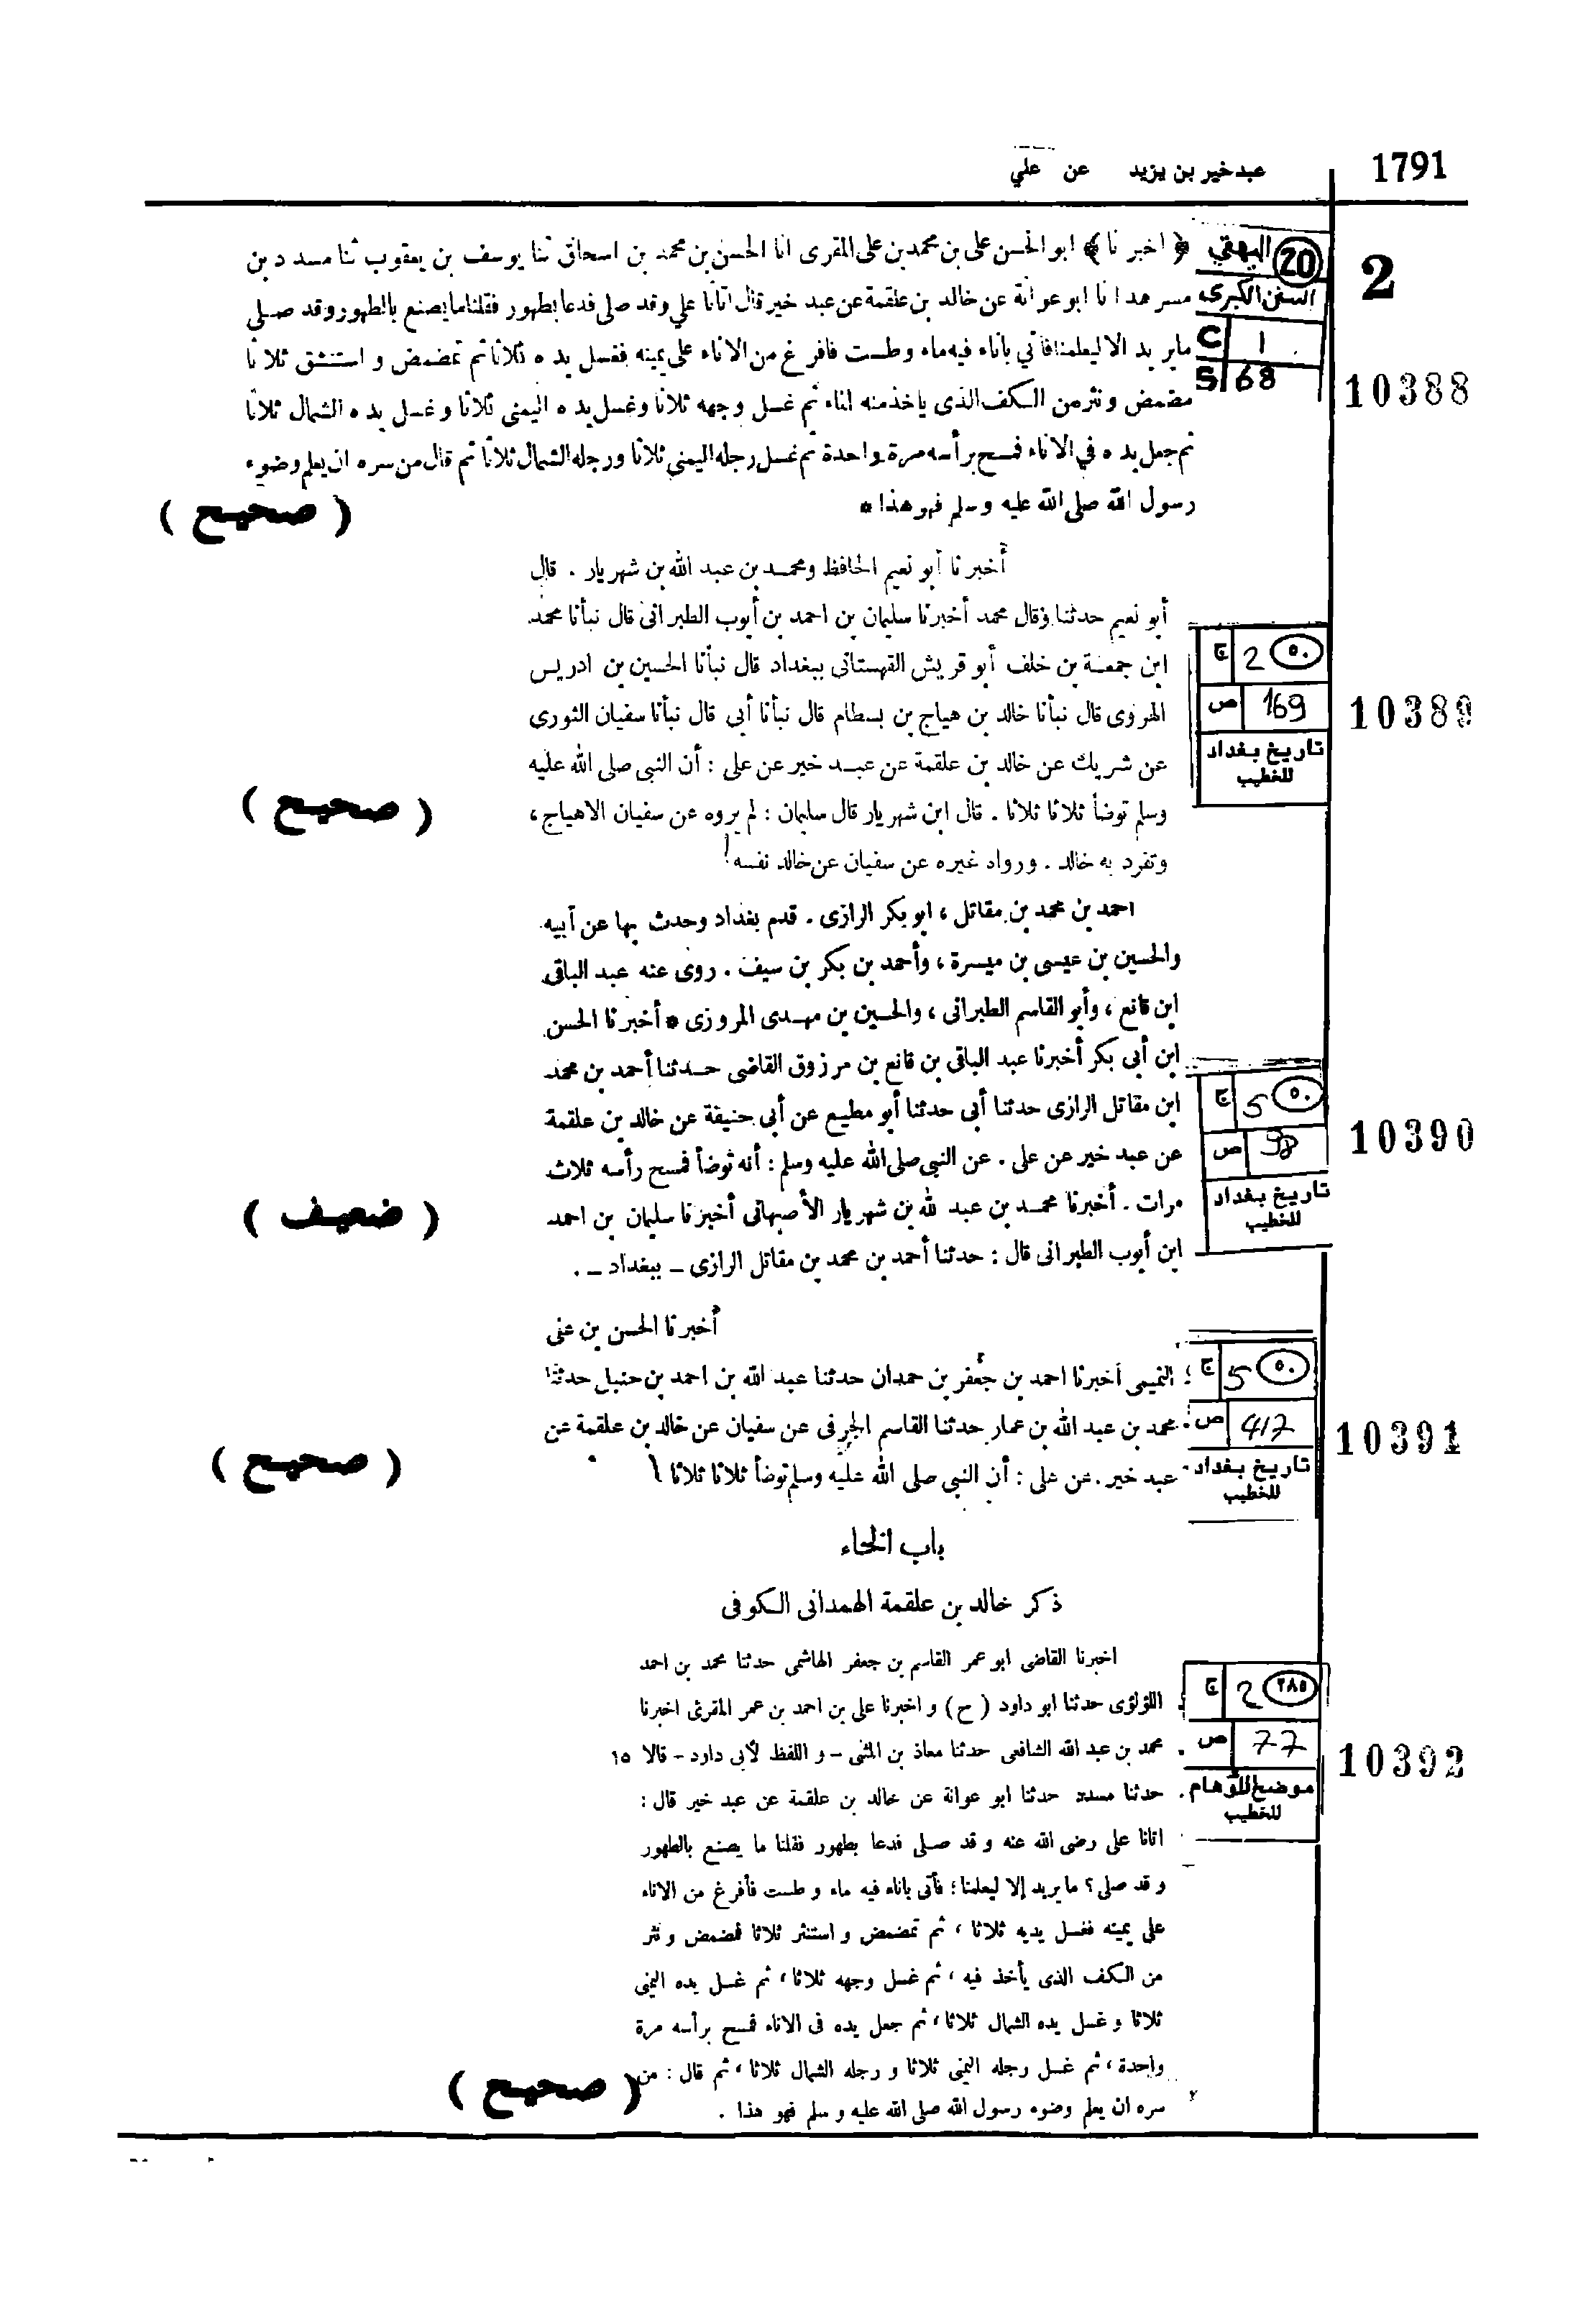 1791
عبدخير بن يزيد عن علي
2
20 البيهقي
السنن الكبرى
C 1
S 68
10388
﴿ اخبرنا ﴾ ابوالحسن على بن محمد بن على المقرى انا الحسن بن محمد بن اسحاق ثنا يوسف بن يعقوب ثنا مسدد بن
مسرهد انا ابو عوانة عن خالد بن علقمة عن عبد خير قال اتانا علي وقد صلى فدعا بطهور فقلنا ما يصنع بالطهور وقد صلى
ما يريد الا ليعلمنا فاتي باناء فيه ماء وطست فافرغ من الاناء على يمينه فغسل يده ثلاثا ثم تمضمض و استنشق ثلاثا
مضمض ونثر من الكف الذى ياخذ منه الماء ثم غسل وجهه ثلاثا وغسل يده اليمنى ثلاثا وغسل يده الشمال ثلاثا
ثم جعل يده في الاناء فمسح برأسه مرة واحدة ثم غسل رجله اليمنى ثلاثا ورجله الشمال ثلاثا ثم قال من سره ان يعلم وضوء
رسول الله صلى الله عليه وسلم فهو هذا *
( صحيح )
أخبرنا أبو نعيم الحافظ ومحمد بن عبد الله بن شهريار . قال
أبو نعيم حدثنا وقال محمد أخبرنا سليمان بن احمد بن أيوب الطبرانى قال نبأنا محمد
ابن جمعة بن خلف أبو قريش القهستانى ببغداد قال نبأنا الحسين بن ادريس
الهروى قال نبأنا خالد بن هياج بن بسطام قال نبأنا أبى قال نبأنا سفيان الثورى
عن شريك عن خالد بن علقمة عن عبد خير عن على : أن النبى صلى الله عليه
وسلم توضأ ثلاثا ثلاثا . قال ابن شهريار قال سليمان : لم يروه عن سفيان الا هياج ،
وتفرد به خالد . ورواه غيره عن سفيان عن خالد نفسه
٥٠ ج 2
ص 169
تاريخ بغداد
للخطيب
10389
( صحيح )
احمد بن محمد بن مقاتل ، ابو بكر الرازى . قدم بغداد وحدث بها عن أبيه
والحسين بن عيسى بن ميسرة ، وأحمد بن بكر بن سيف . روى عنه عبد الباقى
ابن قانع ، وأبو القاسم الطبرانى ، والحسين بن مهدى المروزى * أخبرنا الحسن
ابن أبى بكر أخبرنا عبد الباقى بن قانع بن مرزوق القاضى حدثنا أحمد بن محمد
ابن مقاتل الرازى حدثنا أبى حدثنا أبو مطيع عن أبى حنيفة عن خالد بن علقمة
عن عبد خير عن على . عن النبى صلى الله عليه وسلم : أنه توضأ فمسح رأسه ثلاث
مرات . أخبرنا محمد بن عبد الله بن شهريار الأصبهانى أخبرنا سليمان بن احمد
ابن أيوب الطبرانى قال : حدثنا أحمد بن محمد بن مقاتل الرازى ــ ببغداد ــ .
٥٠ ج 5
ص 98
تاريخ بغداد
للخطيب
10390
( ضعيف )
أخبرنا الحسن بن على
التميمى أخبرنا احمد بن جعفر بن حمدان حدثنا عبد الله بن احمد بن حنبل حدثنا
محمد بن عبد الله بن عمار حدثنا القاسم الجرمى عن سفيان عن خالد بن علقمة عن
عبد خير . عن على : أن النبى صلى الله عليه وسلم توضأ ثلاثا ثلاثا
٥٠ ج 5
ص 417
تاريخ بغداد
للخطيب
10391
( صحيح )
باب الخاء
ذكر خالد بن علقمة الهمدانى الكوفى
اخبرنا القاضى ابو عمر القاسم بن جعفر الهاشمى حدثنا محمد بن احمد
اللؤلؤى حدثنا ابو داود ( ح ) و اخبرنا على بن احمد بن عمر المقرئ اخبرنا
محمد بن عبد الله الشافعى حدثنا معاذ بن المثنى - و اللفظ لأبى داود - قالا ١٥
حدثنا مسدد حدثنا ابو عوانة عن خالد بن علقمة عن عبد خير قال :
اتانا على رضى الله عنه و قد صلى فدعا بطهور فقلنا ما يصنع بالطهور
و قد صلى ؟ ما يريد إلا ليعلمنا ؛ فأتى باناء فيه ماء و طست فأفرغ من الاناء
على يمينه فغسل يديه ثلاثا ، ثم تمضمض و استنثر ثلاثا فمضمض و نثر
من الكف الذى يأخذ فيه ، ثم غسل وجهه ثلاثا ، ثم غسل يده اليمنى
ثلاثا و غسل يده الشمال ثلاثا ، ثم جعل يده فى الاناء فمسح برأسه مرة
واحدة ، ثم غسل رجله اليمنى ثلاثا و رجله الشمال ثلاثا ، ثم قال : من
سره ان يعلم وضوء رسول الله صلى الله عليه و سلم فهو هذا .
٢٨٥ ج 2
ص 77
موضح الأوهام
للخطيب
10392
( صحيح )